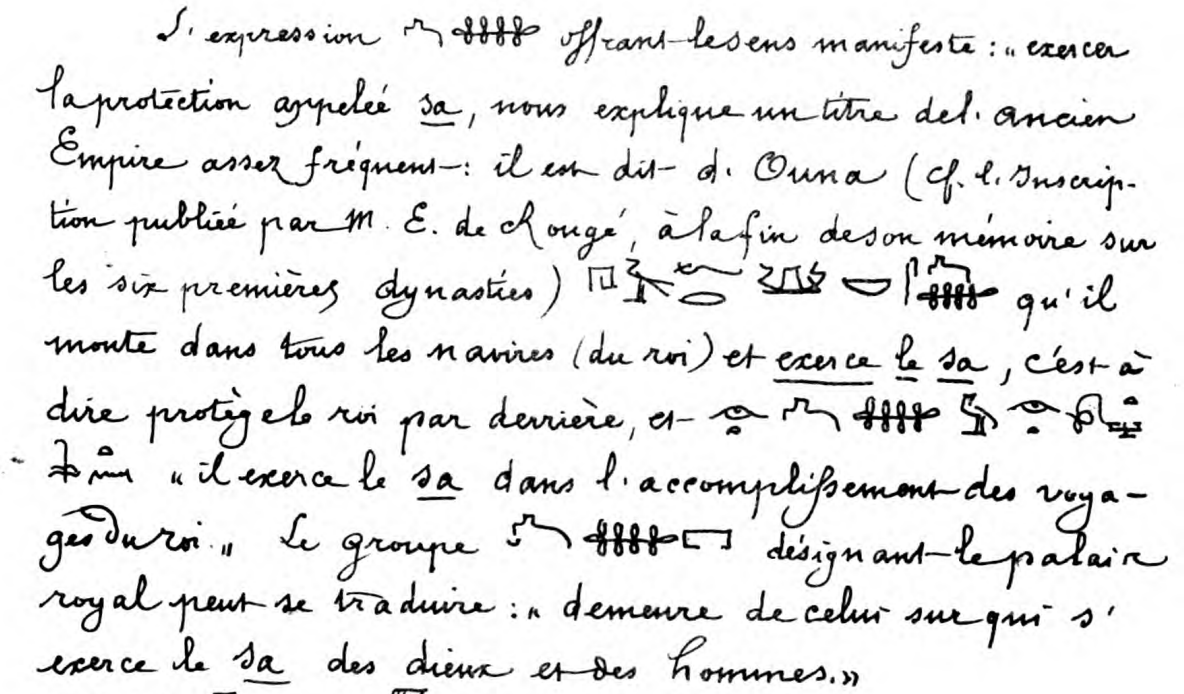 L'expression offrant le sens manifeste : „ exercer
la protection appelée sa, nous explique un titre de l'ancien
Empire assez fréquent : il est dit d'Ouna (cf. l'Inscrip-
tion publiée par M. E. de Rougé, à la fin de son mémoire sur
les six premières dynasties) qu'il
monte dans tous les navires (du roi) et exerce le sa, c'est à
dire protège le roi par derrière, et
„ il exerce le sa dans l'accomplissement des voya-
ges du roi. „ Le groupe désignant le palais
royal peut se traduire : „ demeure de celui sur qui s'
exerce le sa des dieux et des hommes.»